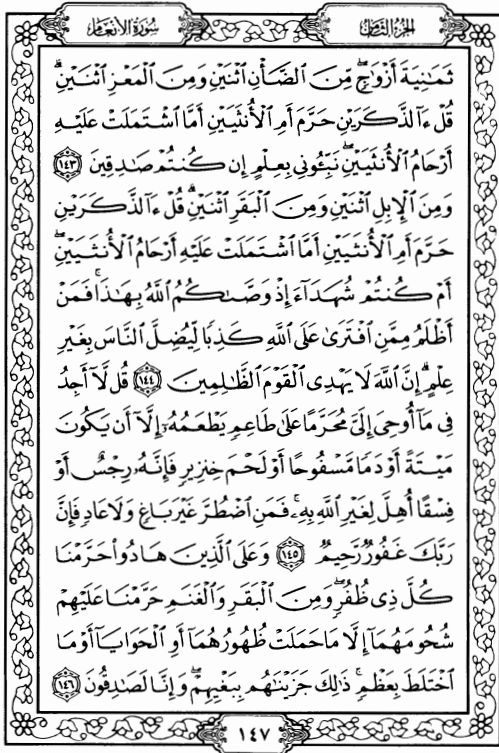 سورة الأنعام
الجزء الثامن
ثَمَٰنِيَةَ أَزْوَٰجٍ ۖ مِّنَ ٱلضَّأْنِ ٱثْنَيْنِ وَمِنَ ٱلْمَعْزِ ٱثْنَيْنِ ۗ
قُلْ ءَآلذَّكَرَيْنِ حَرَّمَ أَمِ ٱلْأُنثَيَيْنِ أَمَّا ٱشْتَمَلَتْ عَلَيْهِ
أَرْحَامُ ٱلْأُنثَيَيْنِ ۖ نَبِّـُٔونِى بِعِلْمٍ إِن كُنتُمْ صَٰدِقِينَ ١٤٣
وَمِنَ ٱلْإِبِلِ ٱثْنَيْنِ وَمِنَ ٱلْبَقَرِ ٱثْنَيْنِ ۗ قُلْ ءَآلذَّكَرَيْنِ
حَرَّمَ أَمِ ٱلْأُنثَيَيْنِ أَمَّا ٱشْتَمَلَتْ عَلَيْهِ أَرْحَامُ ٱلْأُنثَيَيْنِ ۖ
أَمْ كُنتُمْ شُهَدَآءَ إِذْ وَصَّىٰكُمُ ٱللَّهُ بِهَٰذَا ۚ فَمَنْ
أَظْلَمُ مِمَّنِ ٱفْتَرَىٰ عَلَى ٱللَّهِ كَذِبًا لِّيُضِلَّ ٱلنَّاسَ بِغَيْرِ
عِلْمٍ ۗ إِنَّ ٱللَّهَ لَا يَهْدِى ٱلْقَوْمَ ٱلظَّٰلِمِينَ ١٤٤ قُل لَّآ أَجِدُ
فِى مَآ أُوحِىَ إِلَىَّ مُحَرَّمًا عَلَىٰ طَاعِمٍ يَطْعَمُهُۥٓ إِلَّآ أَن يَكُونَ
مَيْتَةً أَوْ دَمًا مَّسْفُوحًا أَوْ لَحْمَ خِنزِيرٍ فَإِنَّهُۥ رِجْسٌ أَوْ
فِسْقًا أُهِلَّ لِغَيْرِ ٱللَّهِ بِهِۦ ۚ فَمَنِ ٱضْطُرَّ غَيْرَ بَاغٍ وَلَا عَادٍ فَإِنَّ
رَبَّكَ غَفُورٌ رَّحِيمٌ ١٤٥ وَعَلَى ٱلَّذِينَ هَادُوا۟ حَرَّمْنَا
كُلَّ ذِى ظُفُرٍ ۖ وَمِنَ ٱلْبَقَرِ وَٱلْغَنَمِ حَرَّمْنَا عَلَيْهِمْ
شُحُومَهُمَآ إِلَّا مَا حَمَلَتْ ظُهُورُهُمَآ أَوِ ٱلْحَوَايَآ أَوْ مَا
ٱخْتَلَطَ بِعَظْمٍ ۚ ذَٰلِكَ جَزَيْنَٰهُم بِبَغْيِهِمْ ۖ وَإِنَّا لَصَٰدِقُونَ ١٤٦
١٤٧